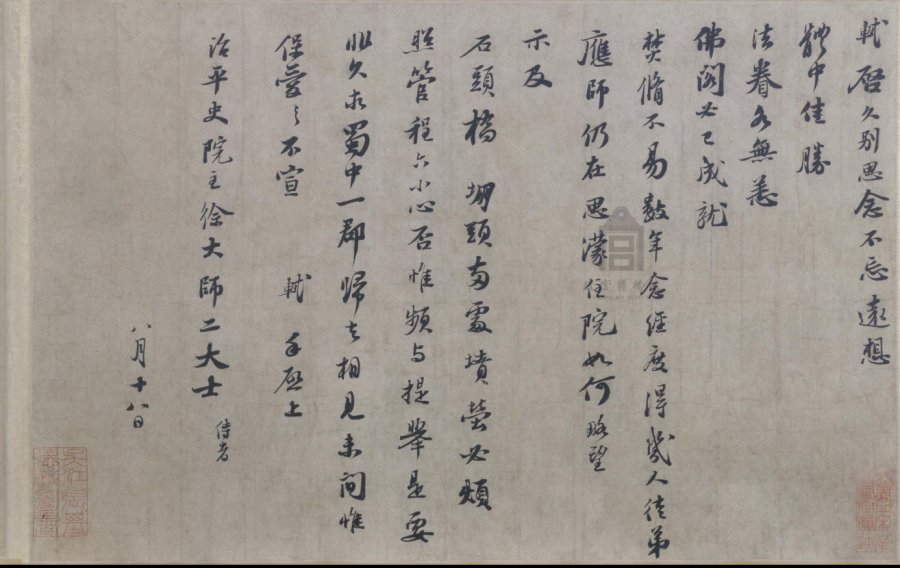 軾啓久别思念不忘遠想
體中佳勝
法眷各無恙
佛閣必已成就
焚脩不易數年念經度得幾人徒弟
應師仍在思濛住院如何略望
示及
石頭橋 堋頭兩處墳塋必煩
照管程六小心否惟頻與提舉是要
非久求蜀中一郡歸去相見未間惟
保愛之不宣 軾 手啓上
治平史院主徐大師二大士
侍者
八月十八日